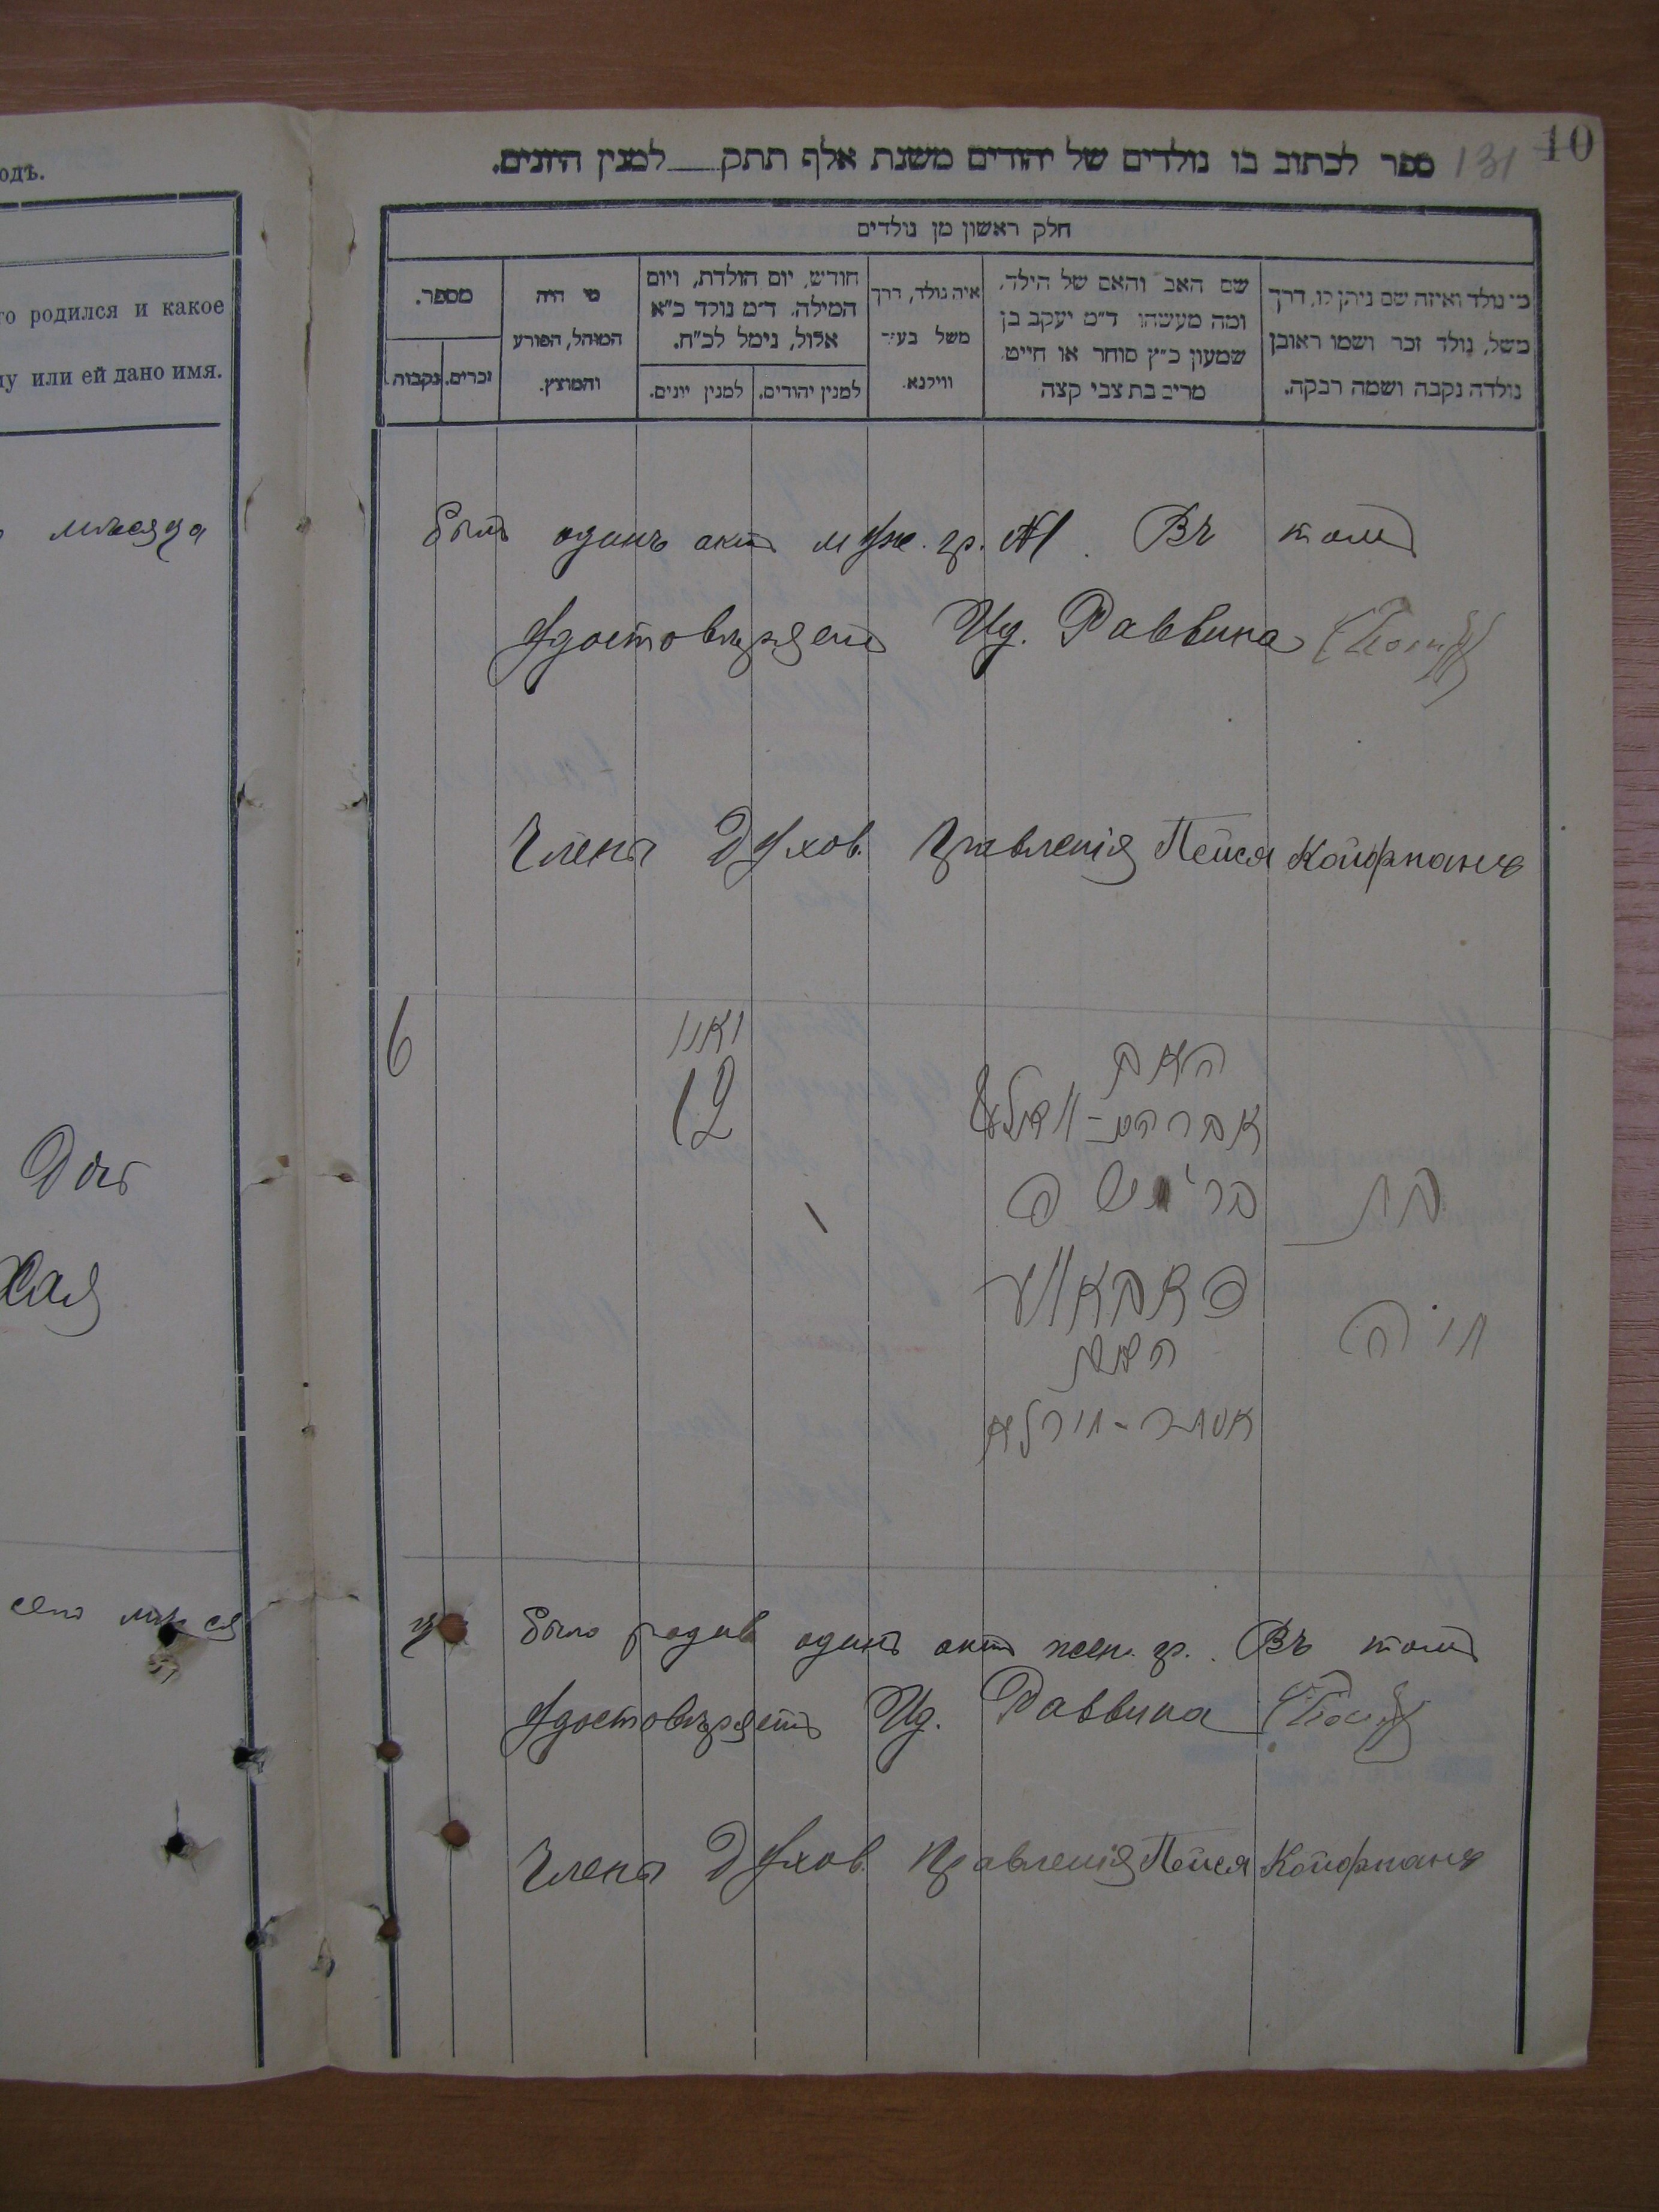 одъ.
го родился и какое
му или ей дано имя.
мѣсяца
Дочь
Хая
сего мѣся
10
131
ספר לכתוב בו נולדים של יהודים משנת אלף תתק___למנין היונים.
חלק ראשון מן נולדים
מי נולד ואיזה שם ניתן לו, דרך משל, נולד זכר ושמו ראובן נולדה נקבה ושמה רבקה.
שם האב והאם של הילד, ומה מעשהו ד״מ יעקב בן שמעון כ״ץ סוחר או חייט מרים בת צבי קצה
איה נולד, דרך משל בעיר ווילנא.
חודש, יום הולדת, ויום המילה. ד״מ נולד כ״א אלול, נימל לכ״ח.
למנין יהודים.
למנין יונים.
מי היה המוהל, הפורע והמוצץ.
מספר.
זכרים.
נקבות.
былъ одинъ актъ муж. гр. Въ томъ
удостовѣряетъ Ид. Раввина
Члены Духов. Правленія Пейся Койфманъ
6
12
האב
אברהם
בת
חיה
האם
אסתר
ца было родив. одинъ актъ жен. гр. Въ томъ
удостовѣряетъ Ид. Раввина
Члены Духов. Правленія Пейся Койфманъ